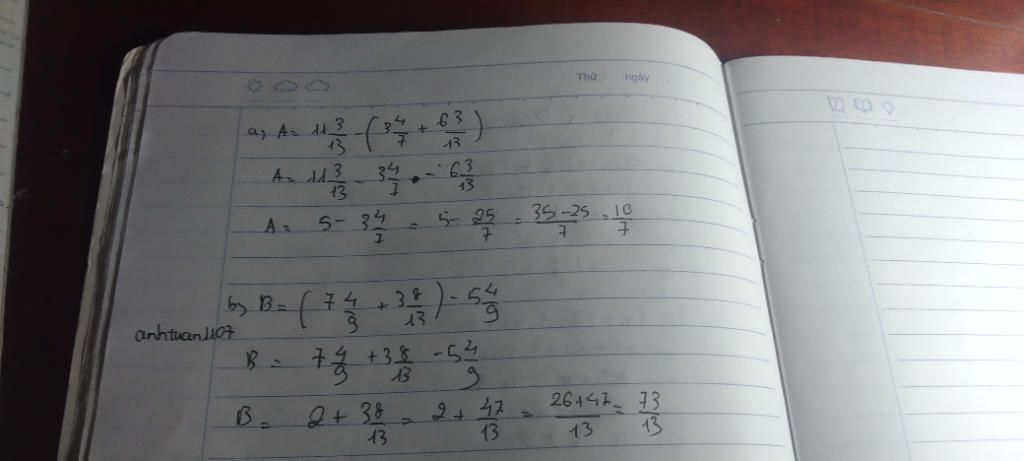 Thứ ngày
a) A = 11 3/13 - (3 4/7 + 6 3/13)
A = 11 3/13 - 3 4/7 - 6 3/13
A = 5 - 3 4/7 = 5 - 25/7 = 35-25/7 = 10/7
b) B = (7 4/9 + 3 8/13) - 5 4/9
anhtuan1107
B = 7 4/9 + 3 8/13 - 5 4/9
B = 2 + 3 8/13 = 2 + 47/13 = 26+47/13 = 73/13